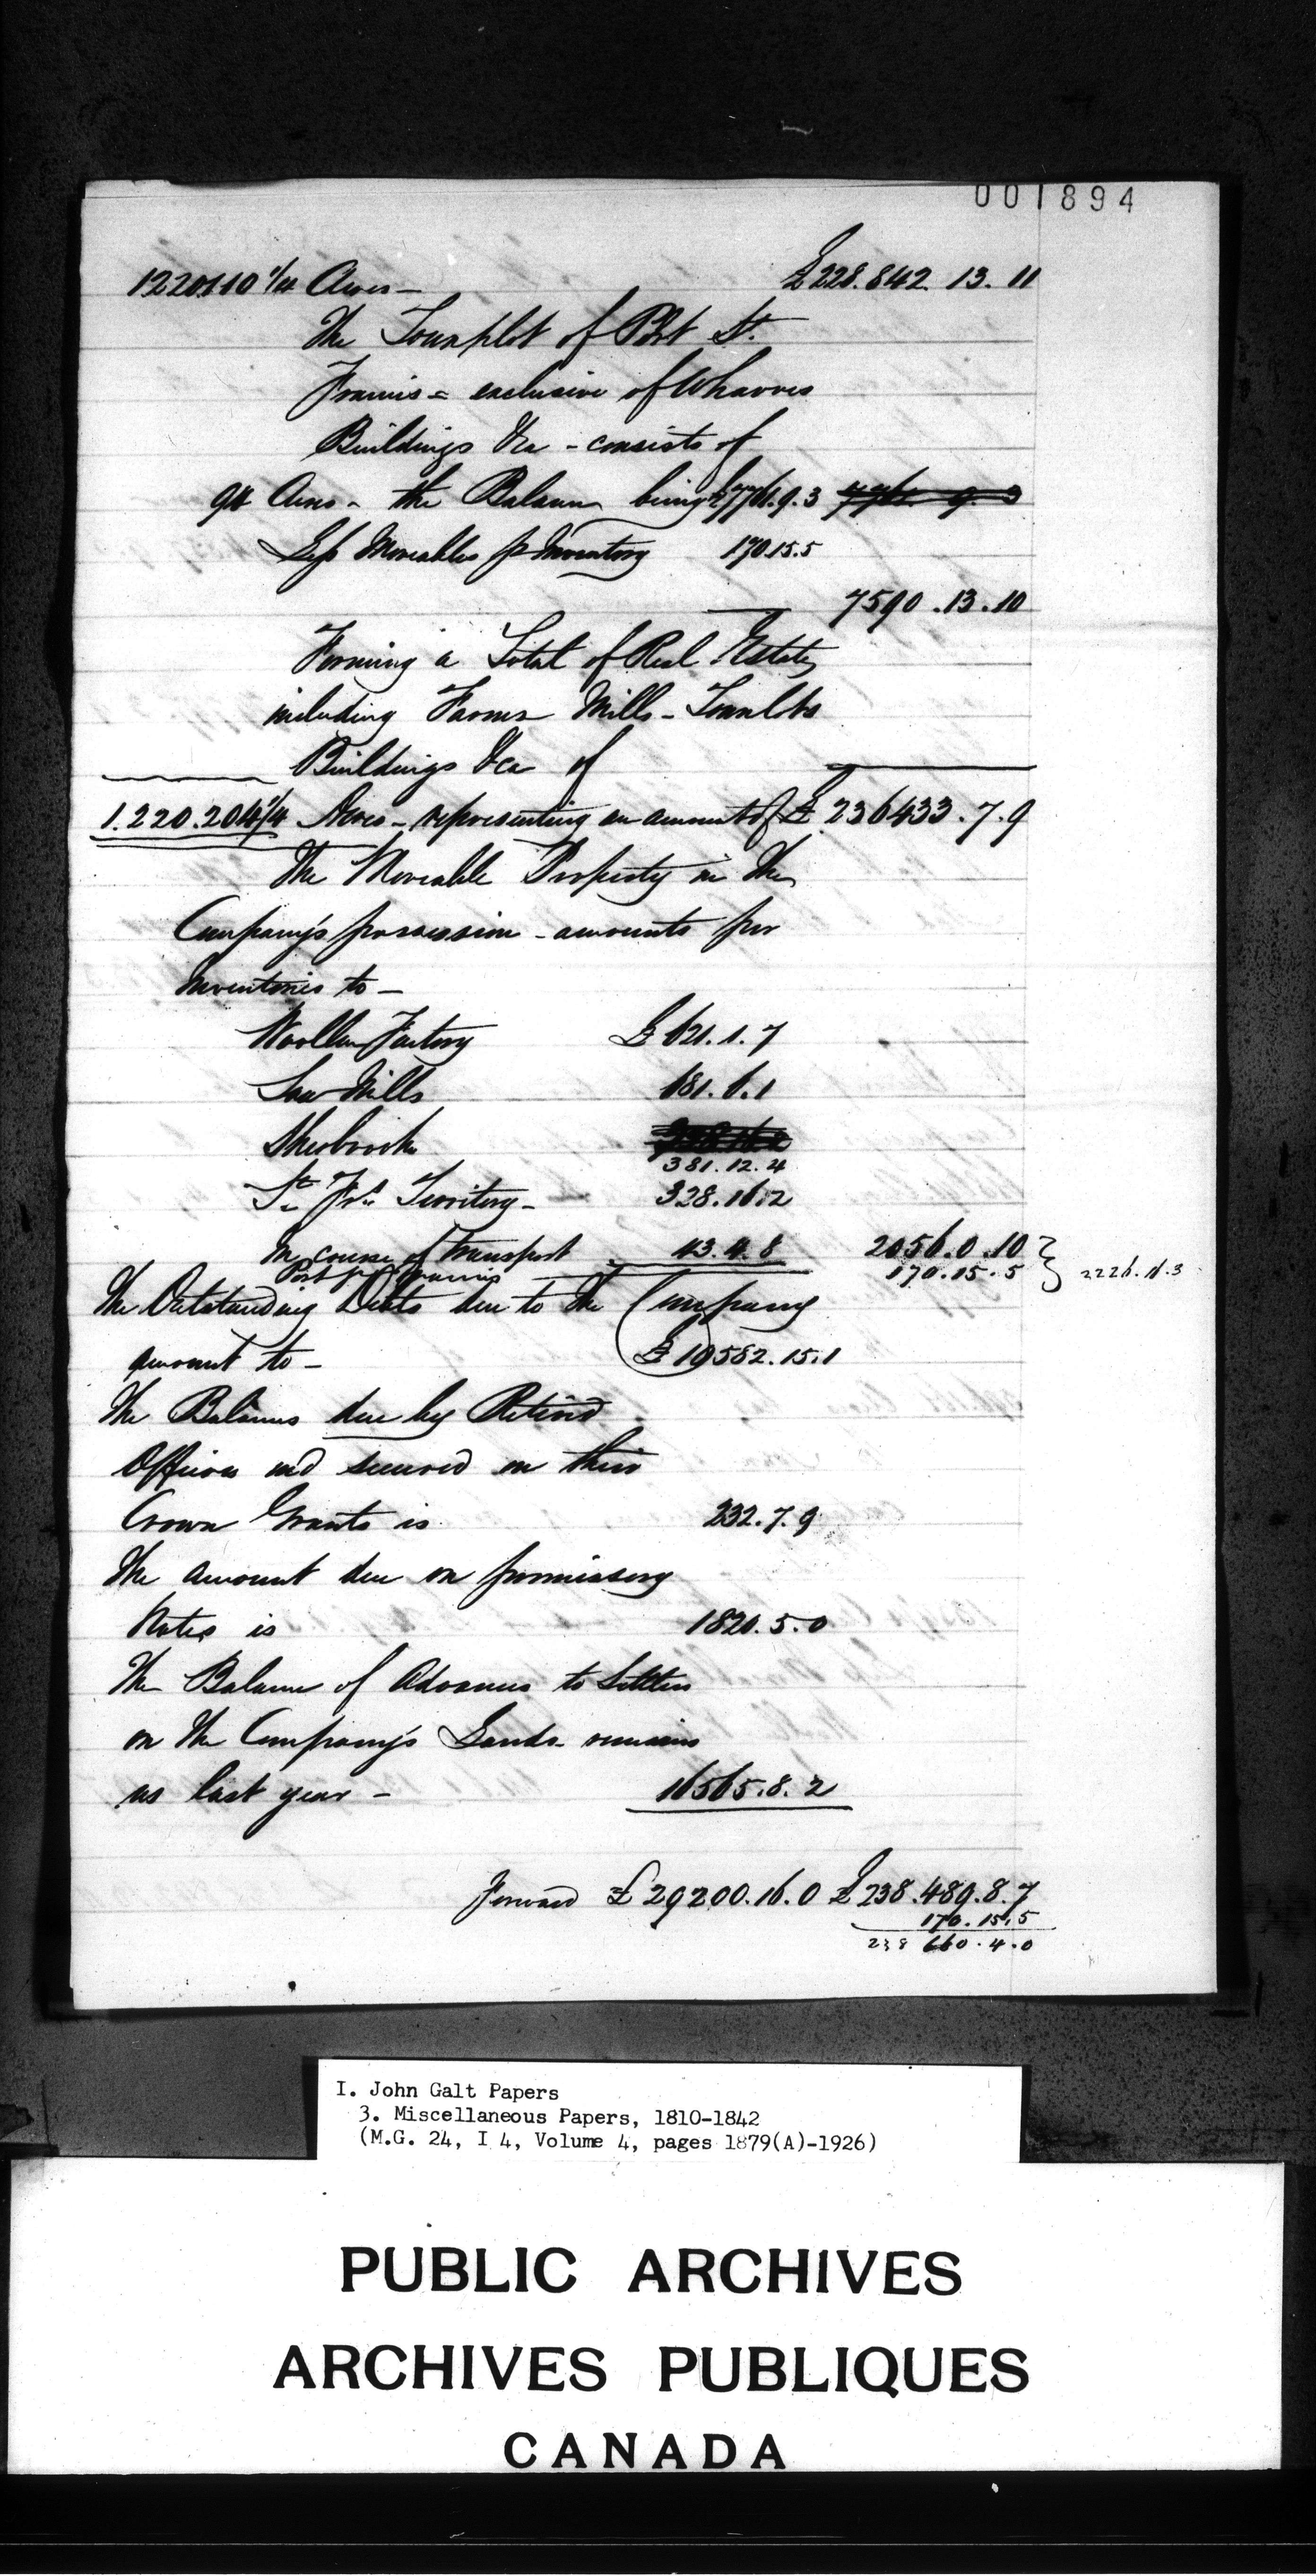 001894
1220110 1/4 Acres — £228.842. 13. 11
The Townplot of Port St.
Francis = exclusive of Wharves
Buildings &ca - consists of
94 Acres - the Balance being £7761.9.3 7761. 9. 3
Less Moveables pr Inventory 170.15.5
7590.13.10
Forming a Total of Real Estate,
including Farms Mills - Townlots
Buildings &ca of
1.220.204 1/4 Acres - representing an amount of £ 236433.7.9
The Moveable Property in the
Company's possession - amounts per
Inventories to —
Woollen Factory £ 621.1.7
Saw Mills 681.6.1
Sherbrooke
381.12.4
St Frs Territory - 328.16.2
In course of transport 43.4.8 2056.0.10
Port St Francis 170.15.5 } 2226.16.3
The Outstanding Debts due to the Company
amount to — £ 10582.15.1
The Balances due by Retired
Officers and secured on their
Crown Grants is 232.7.9
The amount due on promissory
Notes is 1820.5.0
The Balance of Advances to Settlers
on the Company's Lands remains
as last year - 16565.8.2
Forward £ 29200.16.0 £ 238.489.8.7
170.15.5
238 660.4.0
I. John Galt Papers
3. Miscellaneous Papers, 1810-1842
(M.G. 24, I 4, Volume 4, pages 1879(A)-1926)
PUBLIC ARCHIVES
ARCHIVES PUBLIQUES
CANADA